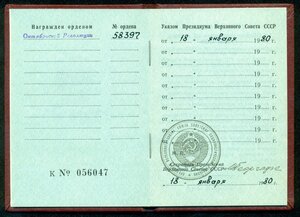 Награжден орденом
№ ордена
Октябрьской Революции
58397
К № 056047
Указом Президиума Верховного Совета СССР
от 18 января 19 80 г.
от 19 г.
от 19 г.
от 19 г.
от 19 г.
от 19 г.
от 19 г.
от 19 г.
М. П.
Секретарь Президиума
Верховного Совета
18 января 19 80 г.